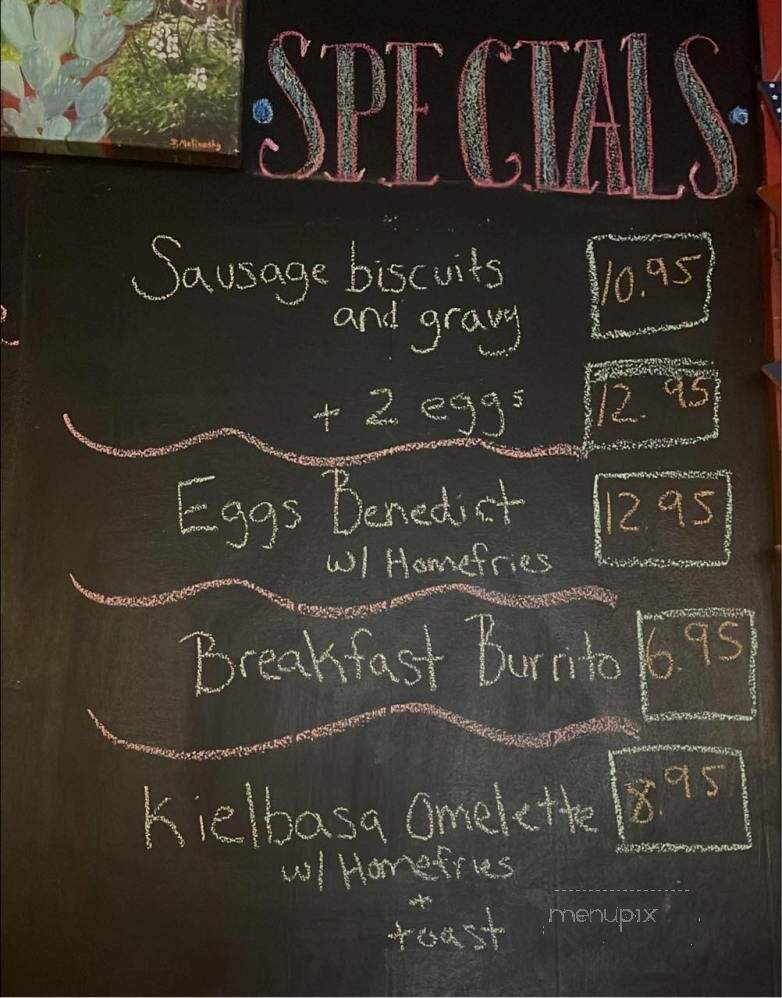 B Melinosky
SPECIALS
Sausage biscuits 10.95
and gravy
+ 2 eggs 12.95
Eggs Benedict 12.95
w/ Homefries
Breakfast Burrito 6.95
Kielbasa Omelette 8.95
w/ Homefries
+
toast
menupix